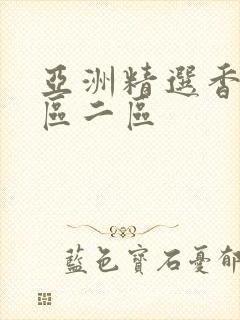 亞洲精選香
區二區
藍色寶石憂郁